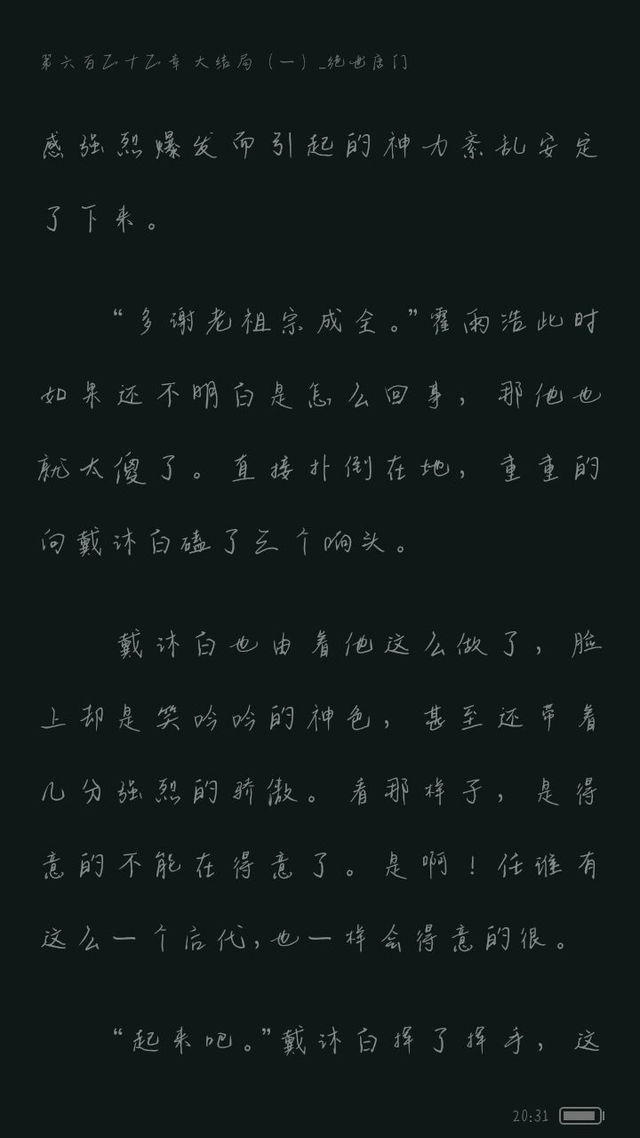 第六百五十五章 大结局（一）_绝世唐门
感强烈爆发而引起的神力紊乱安定
了下来。
“多谢老祖宗成全。”霍雨浩此时
如果还不明白是怎么回事，那他也
就太傻了。直接扑倒在地，重重的
向戴沐白磕了三个响头。
戴沐白也由着他这么做了，脸
上却是笑吟吟的神色，甚至还带着
几分强烈的骄傲。看那样子，是得
意的不能在得意了。是啊！任谁有
这么一个后代，也一样会得意的很。
“起来吧。”戴沐白挥了挥手，这
20:31